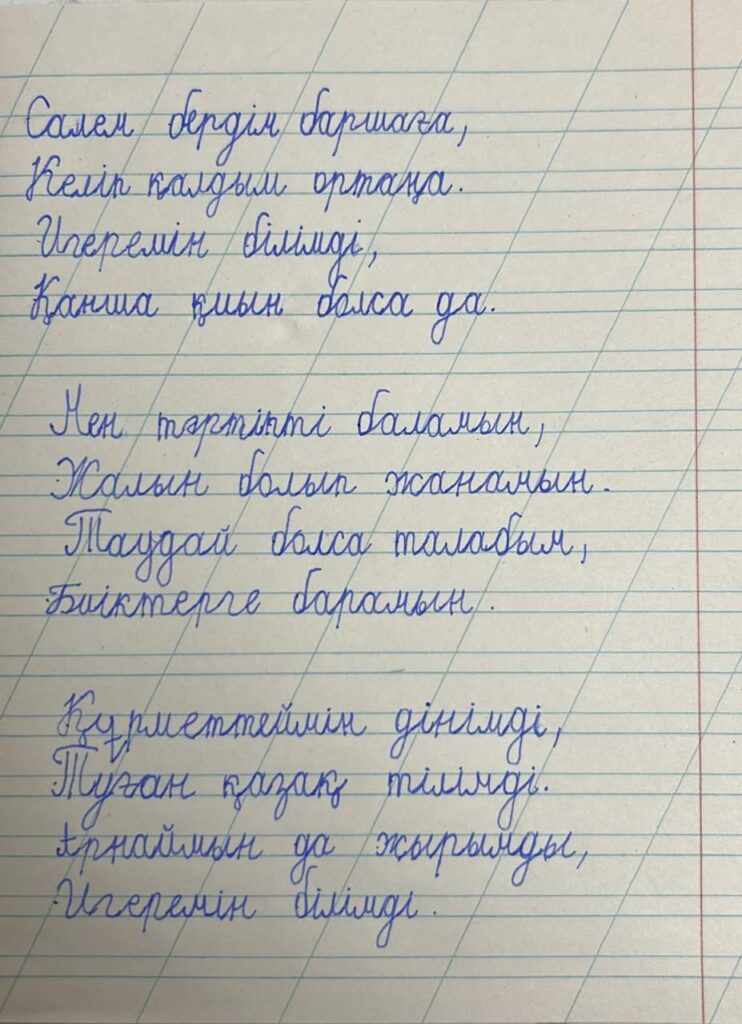 Салем бердім баршаға,
Келіп қалдым ортаңа.
Игеремін білімді,
Қанша қиын болса да.
Мен тәртіпті баламын,
Жалын болып жанамын.
Таудай болса талабым,
Биіктерге барамын.
Құрметтеймін дінімді,
Туған қазақ тілімді.
Арнаймын да жырымды,
Игеремін білімді.